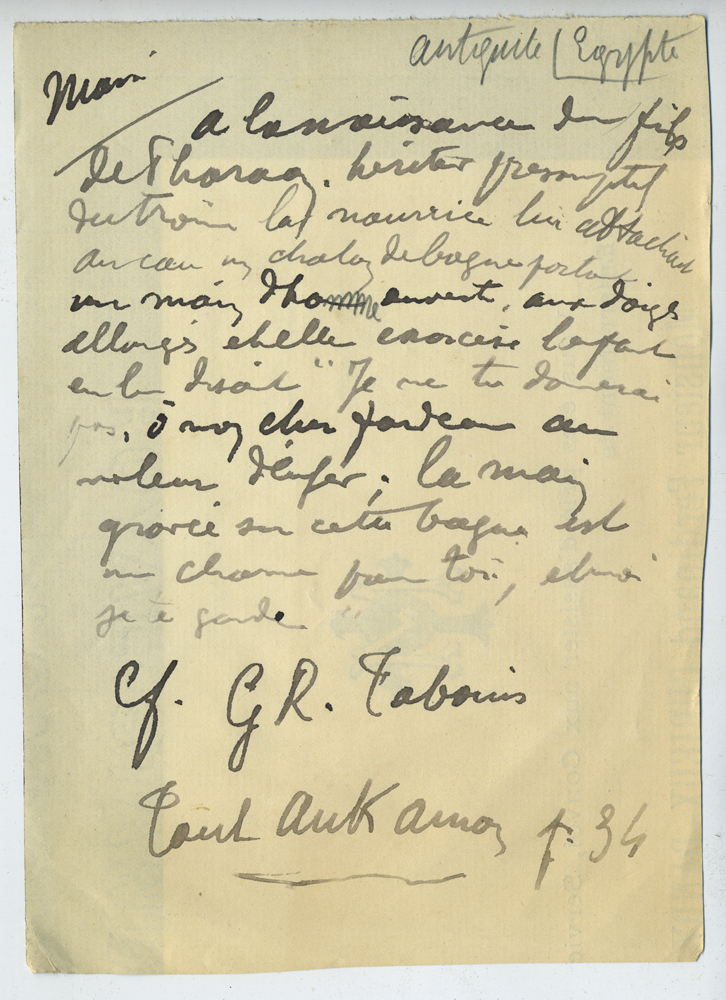 antiquité / Egypte
Main
a la naissance du fils
de Pharaon, héritier présomptif
du trône la nourrice lui attachait
au cou un chaton de bague portant
une main d'homme ouverte, aux doigts
allongés et elle exorcise l'enfant
en lui disait " Je ne te donnerai
pas, ô mon cher fardeau au
voleur d'Enfer; la main
gravée sur cette bague est
un charme pour toi, et moi
je te garde "
Cf. G R. Tabouis
Tout Ank Amon p. 34